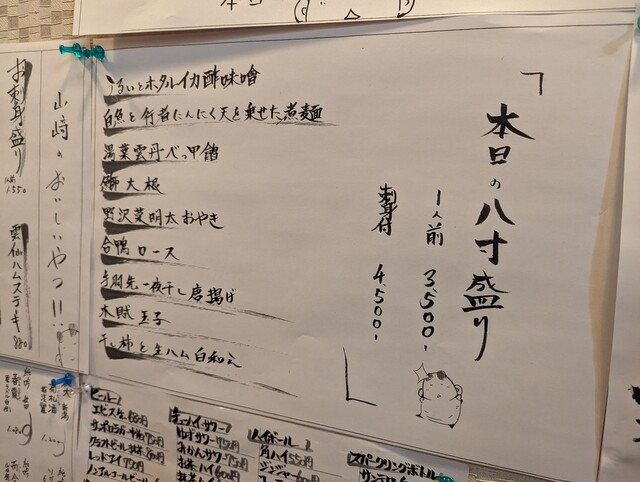 本日の八寸盛り
1人前 3,500-
刺身付 4,500-
うるいとホタルイカ酢味噌
白魚と行者にんにく天を乗せた煮麺
湯葉雲丹べっ甲餡
大根
野沢菜明太おやき
合鴨ロース
手羽先一夜干し唐揚げ
木賊玉子
干し柿と生ハム白和え
山﨑のおいしいやつ!!
お刺身盛り
1,550
雲仙ハムステーキ
880
ビール
エビス生
サッポロラガー
クラフトビール
レッドアイ 750円
ノンアルコールビール
チューハイ・サワー
ゆずサワー 750円
みかんサワー 750円
お茶ハイ
ハイボール
角ハイ 550円
ジンジャー
スパークリングボトル